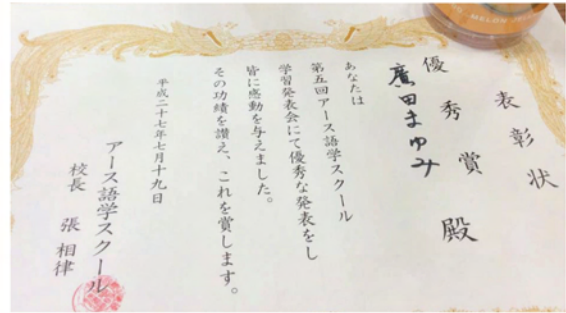 表彰状
優秀賞
廣田まゆみ 殿
あなたは
第五回アース語学スクール
学習発表会にて優秀な発表をし
皆に感動を与えました。
その功績を讃え、これを賞します。
平成二十七年七月十九日
アース語学スクール
校長 張 相律
MELON